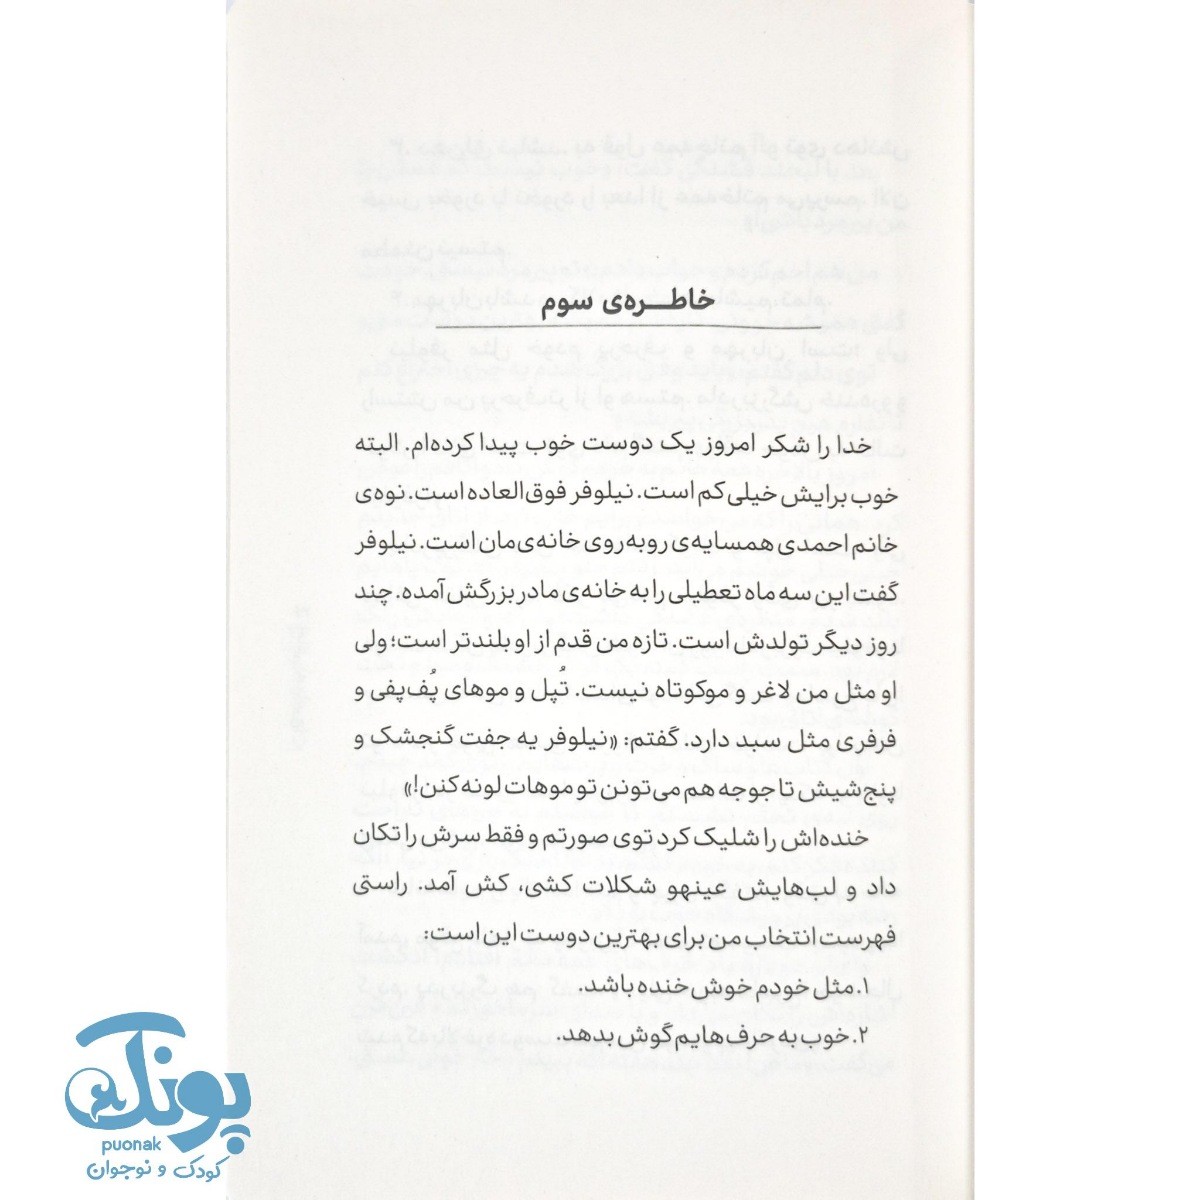 خاطره‌ی سوم
خدا را شکر امروز یک دوست خوب پیدا کرده‌ام. البته
خوب برایش خیلی کم است. نیلوفر فوق‌العاده است. نوه‌ی
خانم احمدی همسایه‌ی روبه‌روی خانه‌ی‌مان است. نیلوفر
گفت این سه ماه تعطیلی را به خانه‌ی مادربزرگش آمده. چند
روز دیگر تولدش است. تازه من قدم از او بلندتر است؛ ولی
او مثل من لاغر و موکوتاه نیست. تُپل و موهای پُف‌پفی و
فرفری مثل سبد دارد. گفتم: «نیلوفر یه جفت گنجشک و
پنج‌شیش تا جوجه هم می‌تونن تو موهات لونه کنن!»
خنده‌اش را شلیک کرد توی صورتم و فقط سرش را تکان
داد و لب‌هایش عینهو شکلات کشی، کش آمد. راستی
فهرست انتخاب من برای بهترین دوست این است:
۱. مثل خودم خوش خنده باشد.
۲. خوب به حرف‌هایم گوش بدهد.
پونک
puonak
کودک و نوجوان